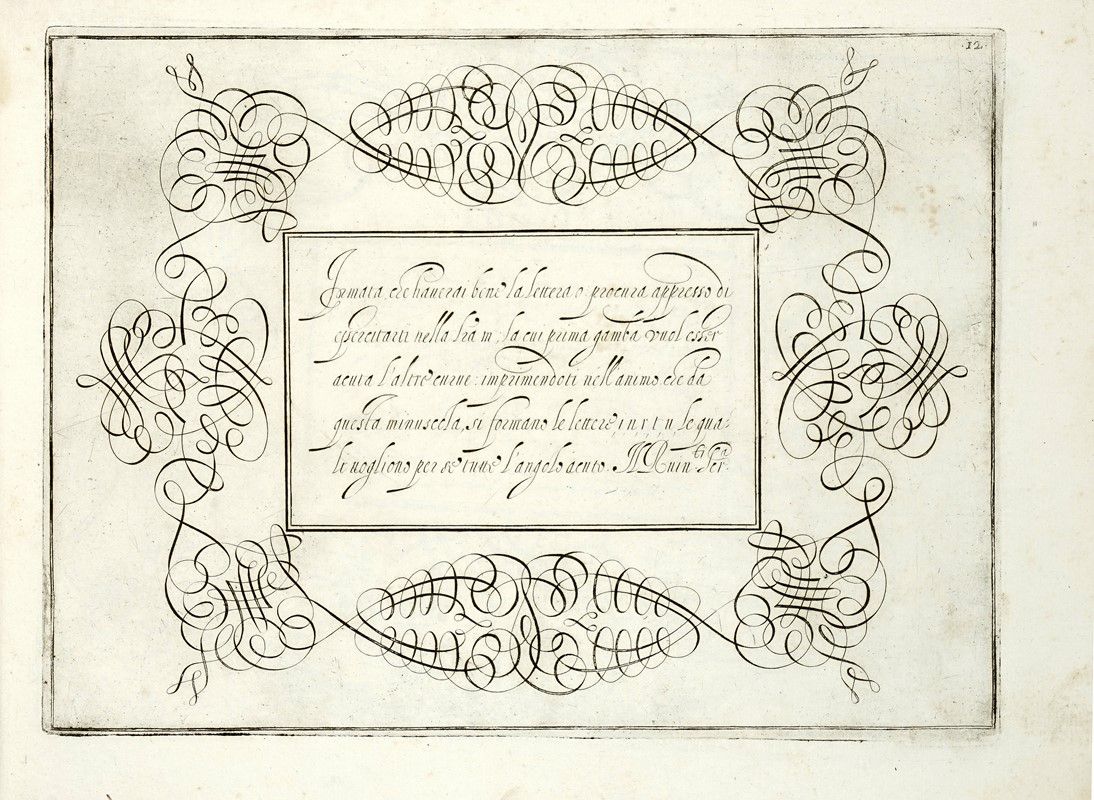 ·12·
Formata, che hauerai bene la lettera o procura appresso di
essercitarti nella lra m, la cui prima gamba vuol esser
acuta l'altre curue: imprimendoti nell'animo, che da
questa minuscola, si formano le lettere, i n r t u, le qua:
li uogliono per se tutte l'angolo acuto.